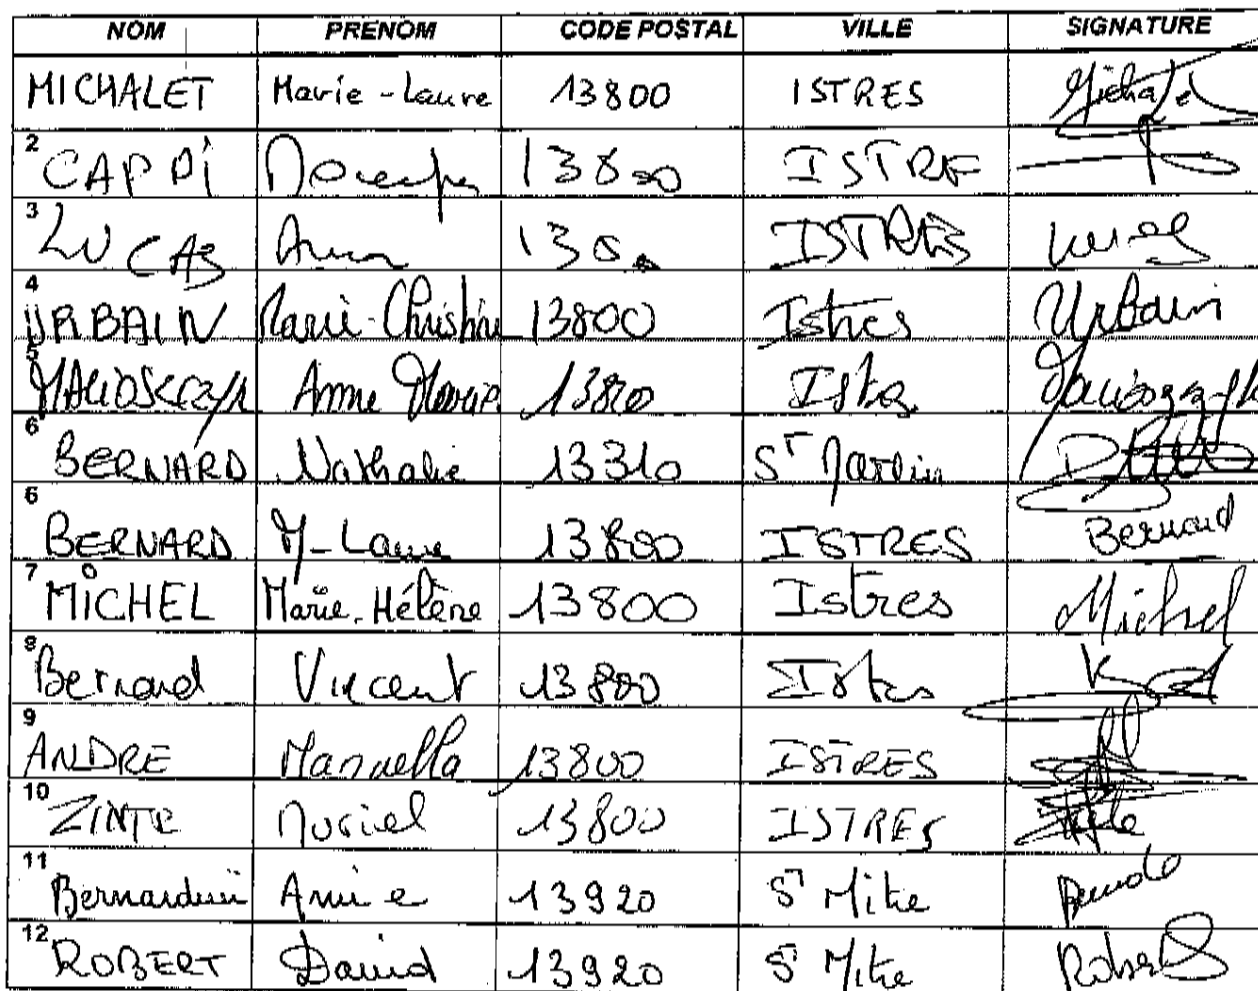 NOM PRENOM CODE POSTAL VILLE SIGNATURE
MICHALET Marie-Laure 13800 ISTRES Michalet
2 CAPPI 13800 ISTRE
3 LUCAS 130 ISTRES Lucas
4 URBAIN Marie-Christine 13800 Istres Urbain
5 Anne Marie 13800 Istres
6 BERNARD Nathalie 13310 ST Martin
6 BERNARD M-Laure 13800 ISTRES Bernard
7 MICHEL Marie-Hélène 13800 Istres Michel
8 Bernard Vincent 13800 Istres
9 ANDRE Manuella 13800 ISTRES
10 ZINTE Muriel 13800 ISTRES
11 Bernardini Annie 13920 ST Mitre
12 ROBERT David 13920 ST Mitre Robert